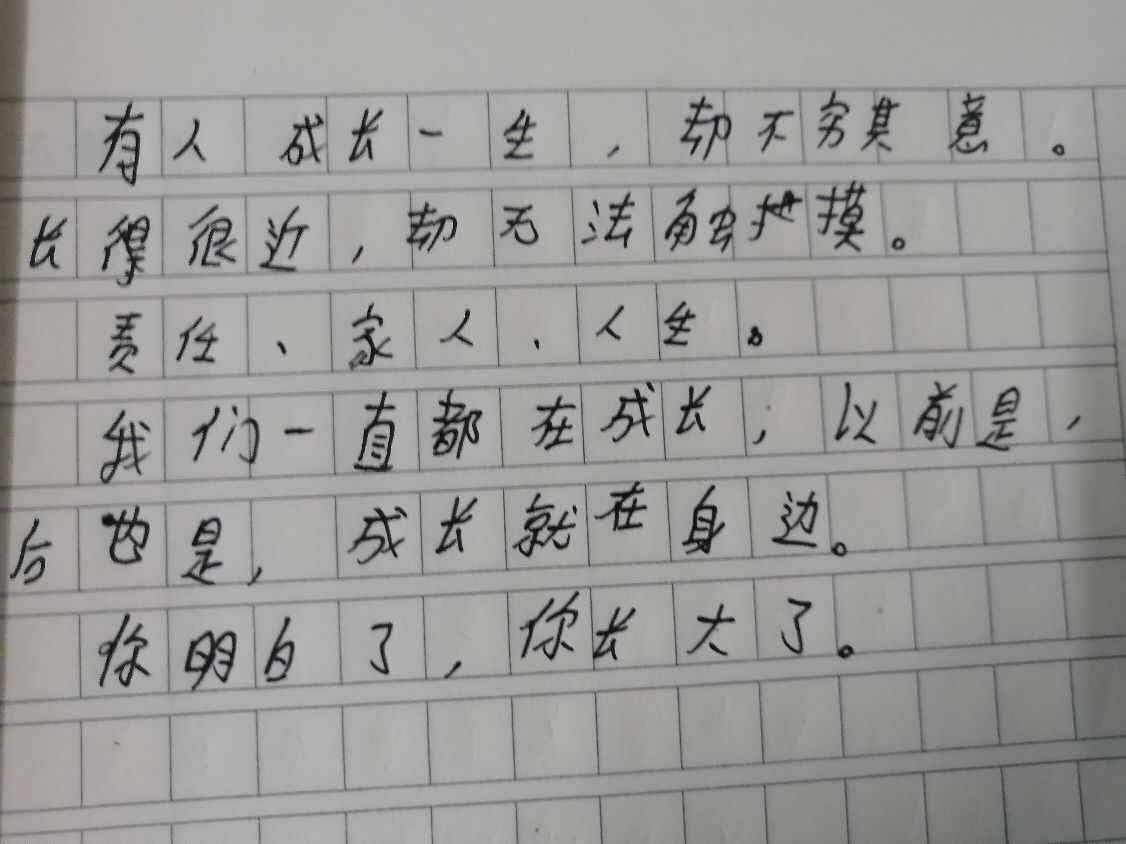 有人成长一生，却不穷其意。
长得很近，却无法触地摸。
责任、家人、人生。
我们一直都在成长；以前是，
后也是，成长就在身边。
你明白了，你长大了。